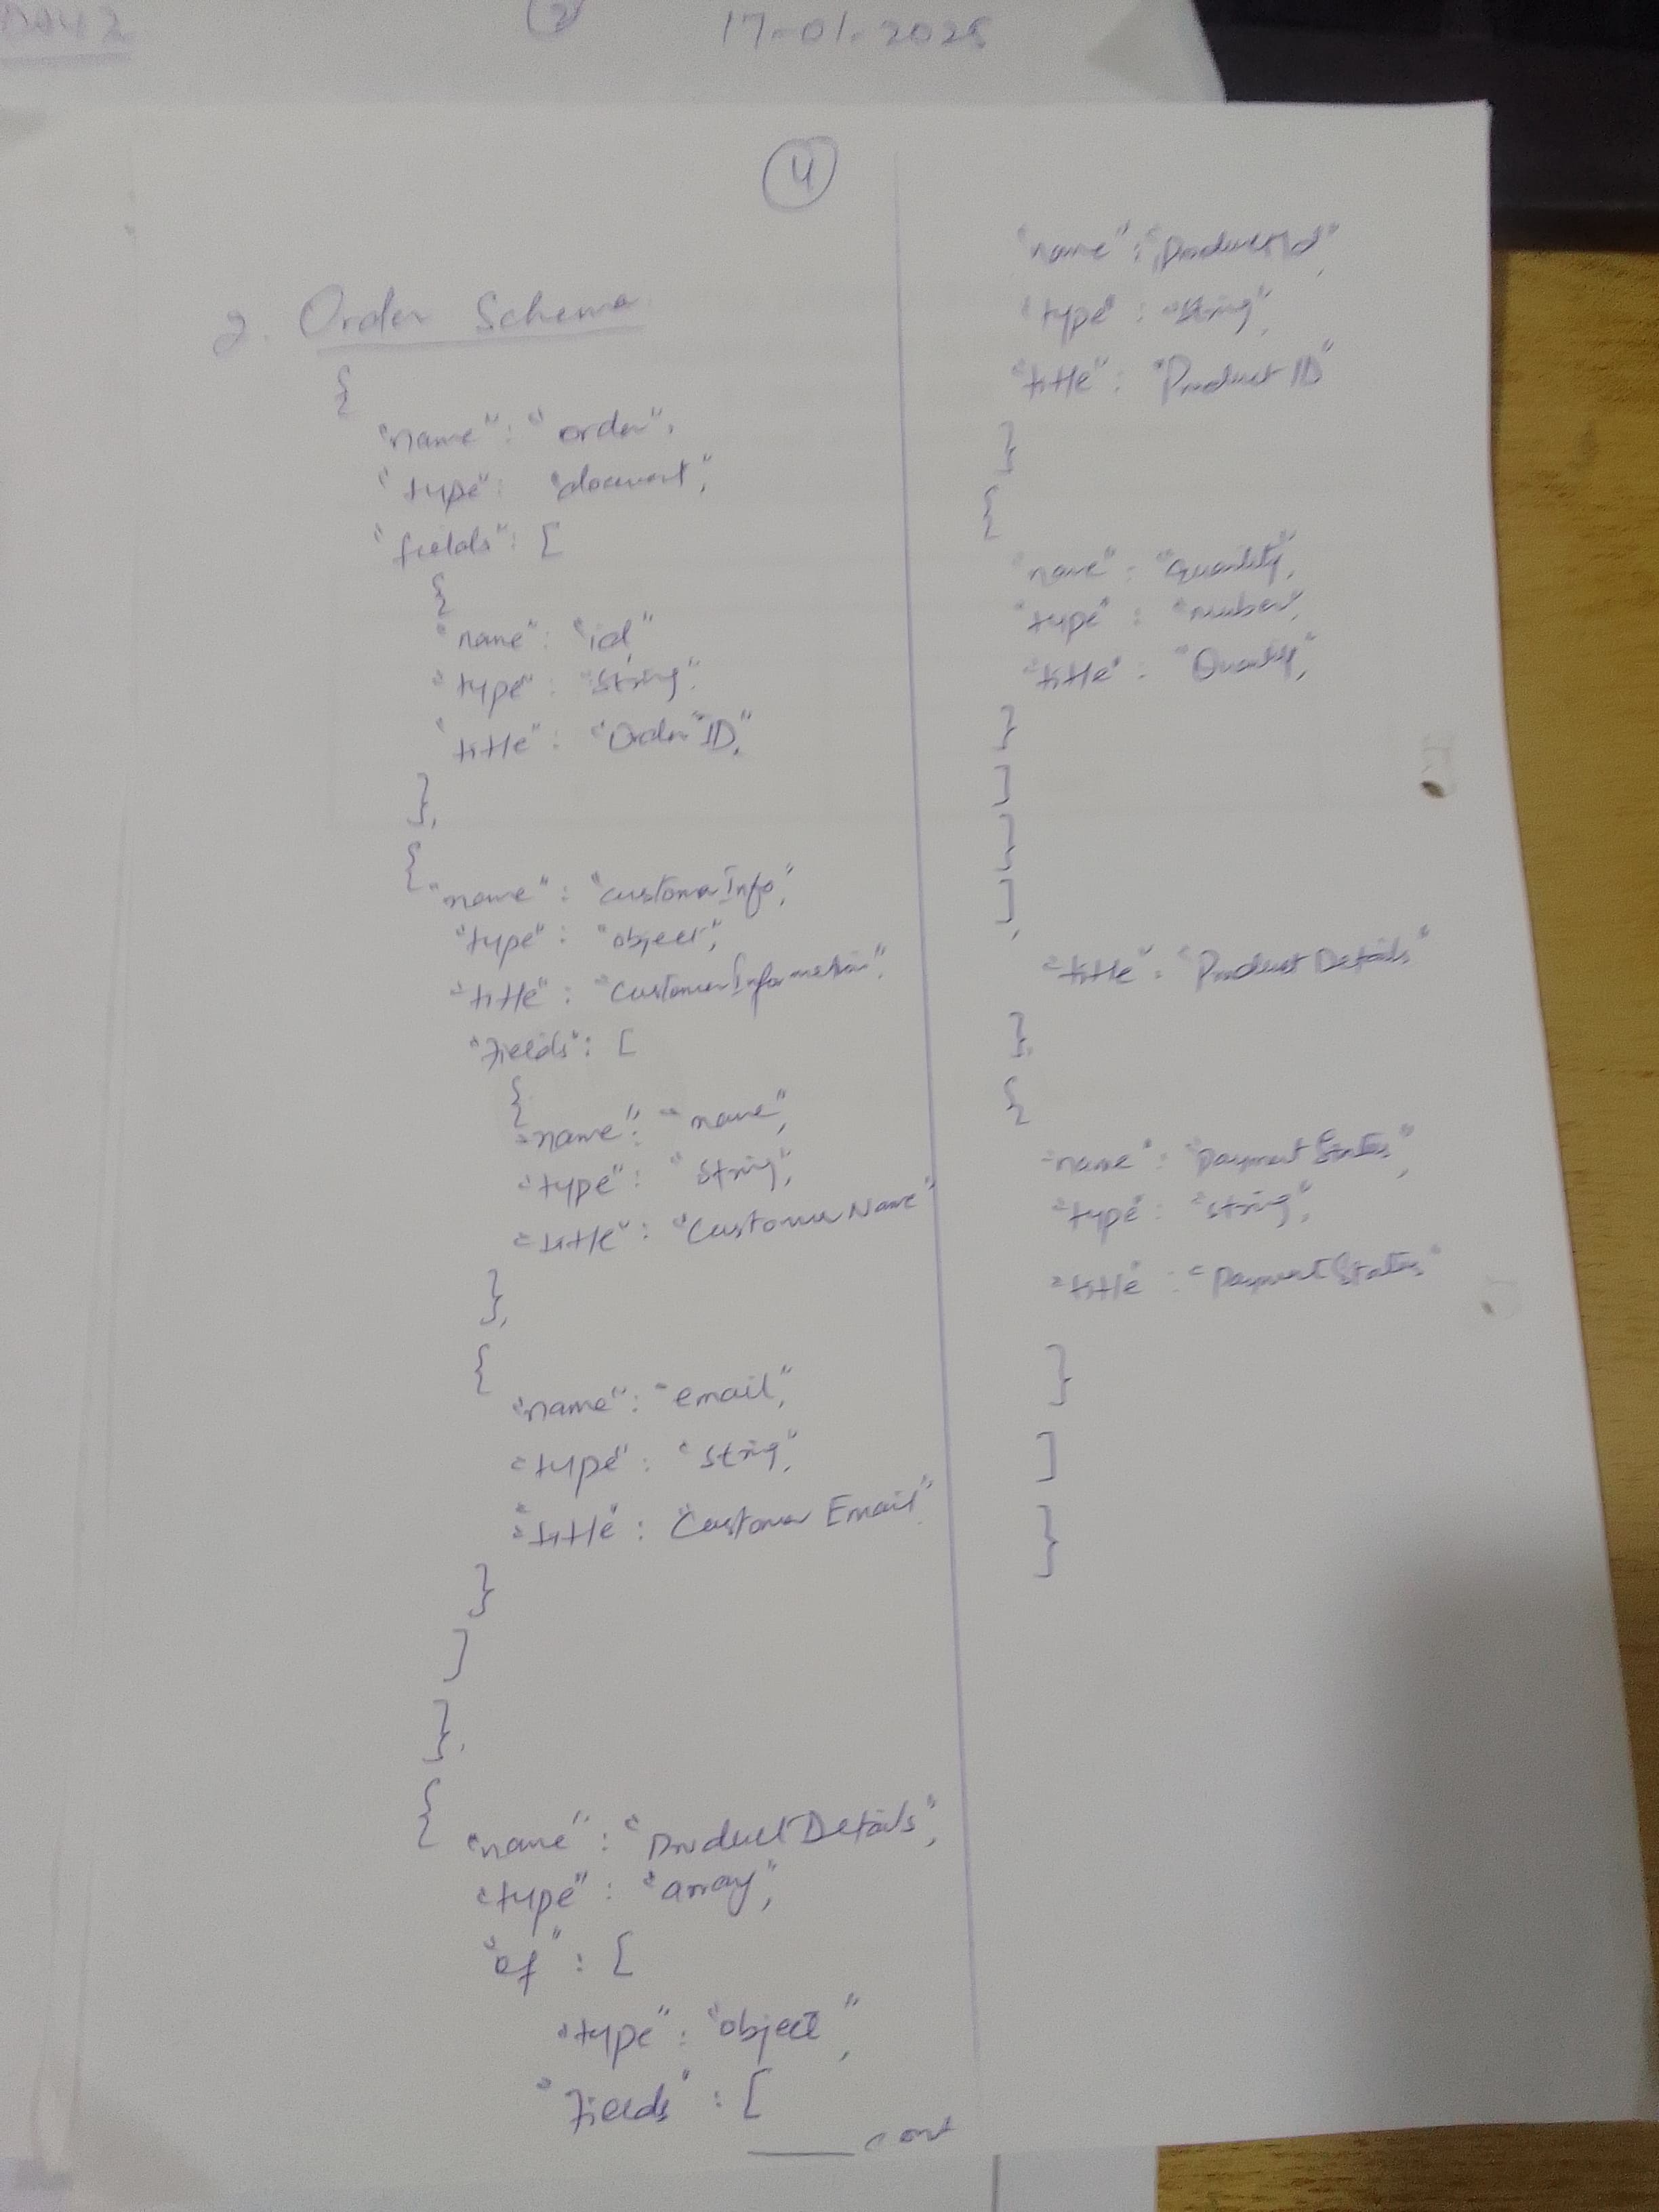 DAY 2
2
17-01-2025
4
2. Order Schema
{
"name": "order",
"type": "document",
"fields": [
{
"name": "id",
"type": "string",
"title": "Order ID",
},
{
"name": "customerInfo",
"type": "object",
"title": "CustomerInformation",
"fields": [
{
"name": "name",
"type": "string",
"title": "Customer Name"
},
{
"name": "email",
"type": "string",
"title": "Customer Email"
}
]
},
{
"name": "ProductDetails",
"type": "array",
"of": [
"type": "object",
"fields": [
cont
"name": "productId",
"type": "string",
"title": "Product ID"
}
{
"name": "quantity",
"type": "number",
"title": "Quantity",
}
]
}
],
"title": "Product Details"
},
{
"name": "paymentStatus",
"type": "string",
"title": "paymentStatus"
}
]
}